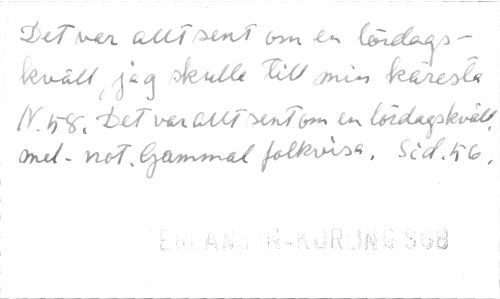 Det var allt sent om en lördags-
kväll, jag skulle till min käresta
N. 58. Det var allt sent om en lördagskväll,
mel-not. Gammal folkvisa. Sid. 56.